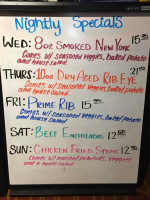 Nightly Specials
WED: 8oz Smoked New York 15.95
Comes w/ seasoned veggies, baked potato
and house salad
21.95
THURS: 10oz Dry Aged Rib Eye
Comes w/ seasoned veggies, baked potato
and house salad
FRI: Prime Rib 15.95
Comes w/ seasoned veggies, baked potato
and house salad
SAT: Beef Enchiladas 12.50
SUN: Chicken Fried Steak 12.95
Comes w/ mashed potatoes, veggies
and a house salad